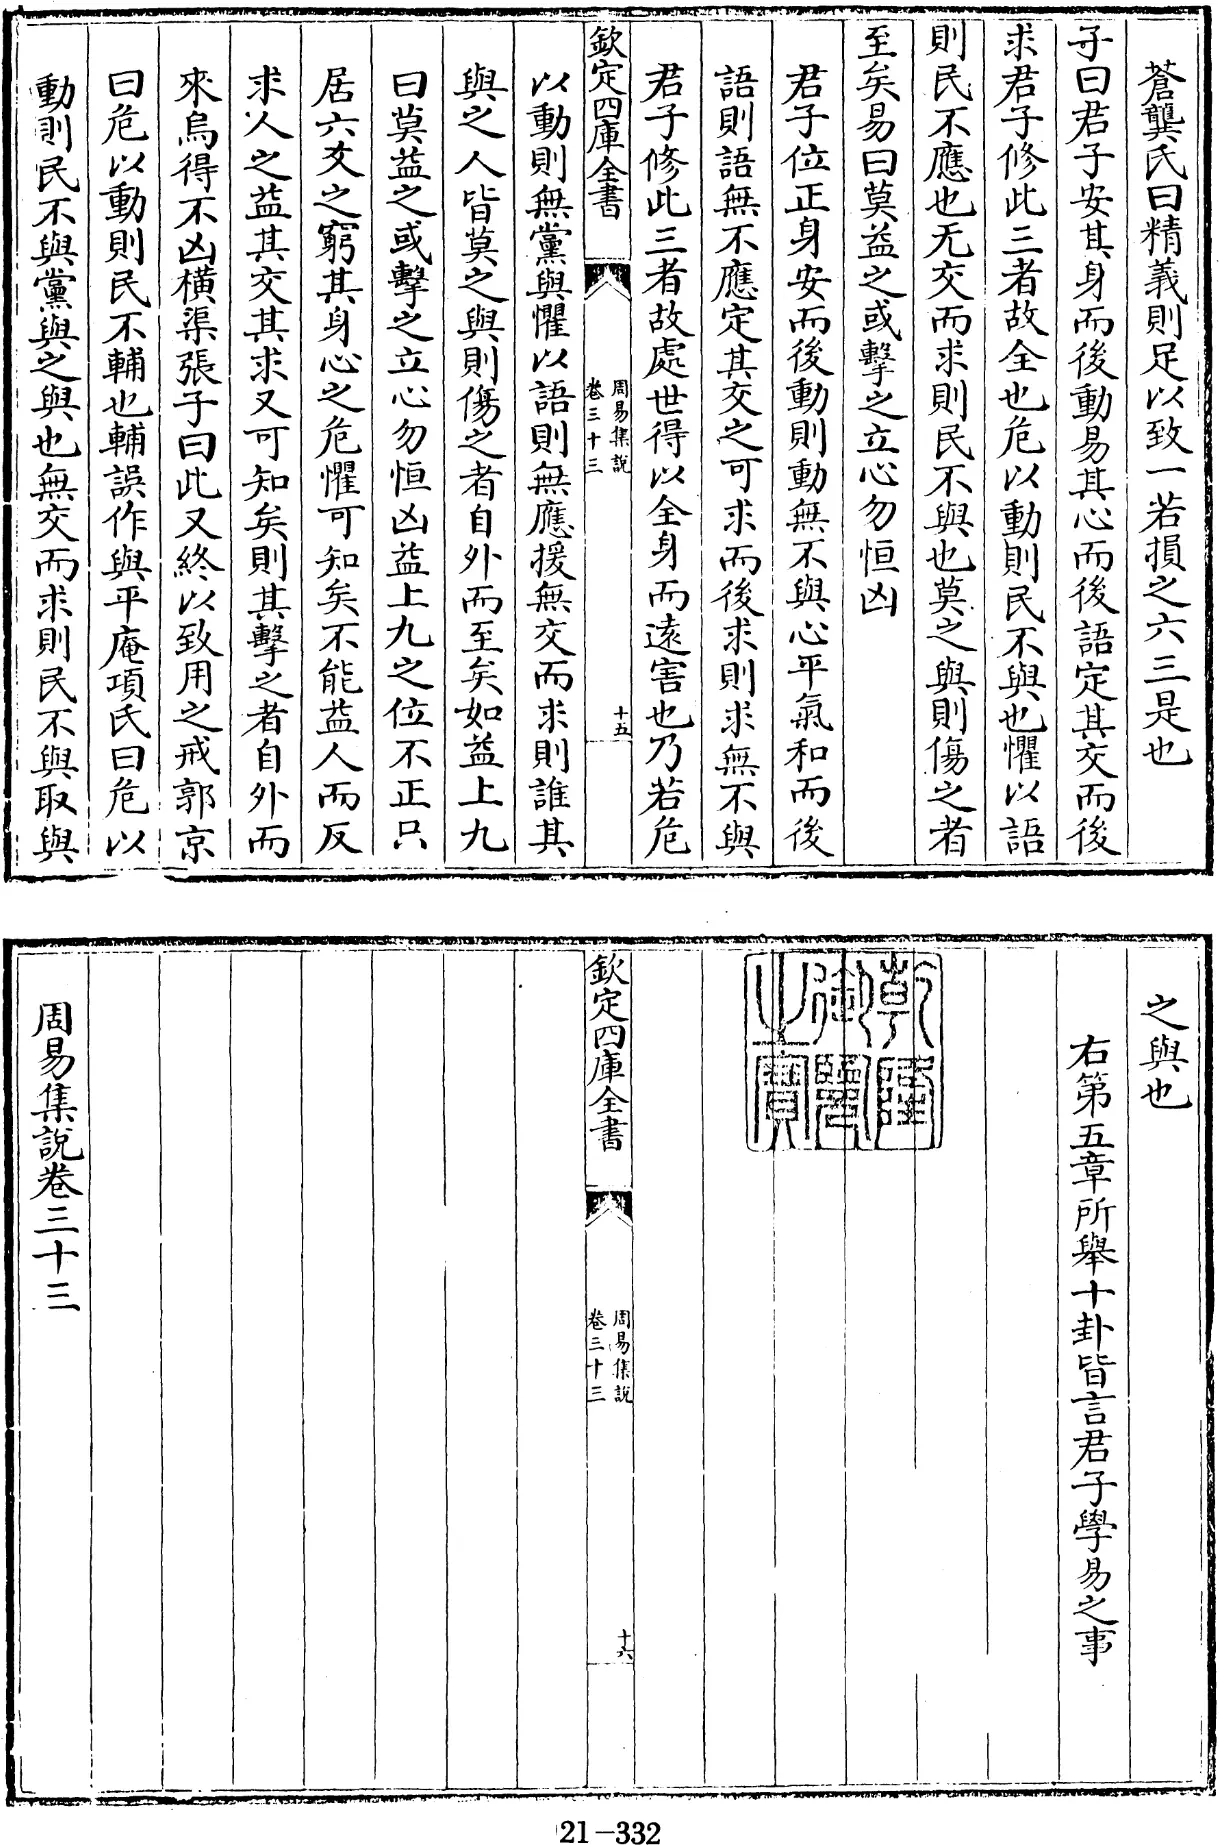 蒼龔氏曰精義則足以致一若損之六三是也
子曰君子安其身而後動易其心而後語定其交而後
求君子修此三者故全也危以動則民不與也懼以語
則民不應也无交而求則民不與也莫之與則傷之者
至矣易曰莫益之或擊之立心勿恒凶
君子位正身安而後動則動無不與心平氣和而後
語則語無不應定其交之可求而後求則求無不與
君子修此三者故處世得以全身而遠害也乃若危
欽定四庫全書
周易集說
卷三十三
十五
以動則無黨與懼以語則無應援無交而求則誰其
與之人皆莫之與則傷之者自外而至矣如益上九
曰莫益之或擊之立心勿恒凶益上九之位不正只
居六爻之窮其身心之危懼可知矣不能益人而反
求人之益其交其求又可知矣則其擊之者自外而
來烏得不凶橫渠張子曰此又終以致用之戒郭京
曰危以動則民不輔也輔誤作與平庵項氏曰危以
動則民不與黨與之與也無交而求則民不與取與
之與也
右第五章所舉十卦皆言君子學易之事
乾隆
御覽
之寶
欽定四庫全書
周易集說
卷三十三
十六
周易集說卷三十三
21-332